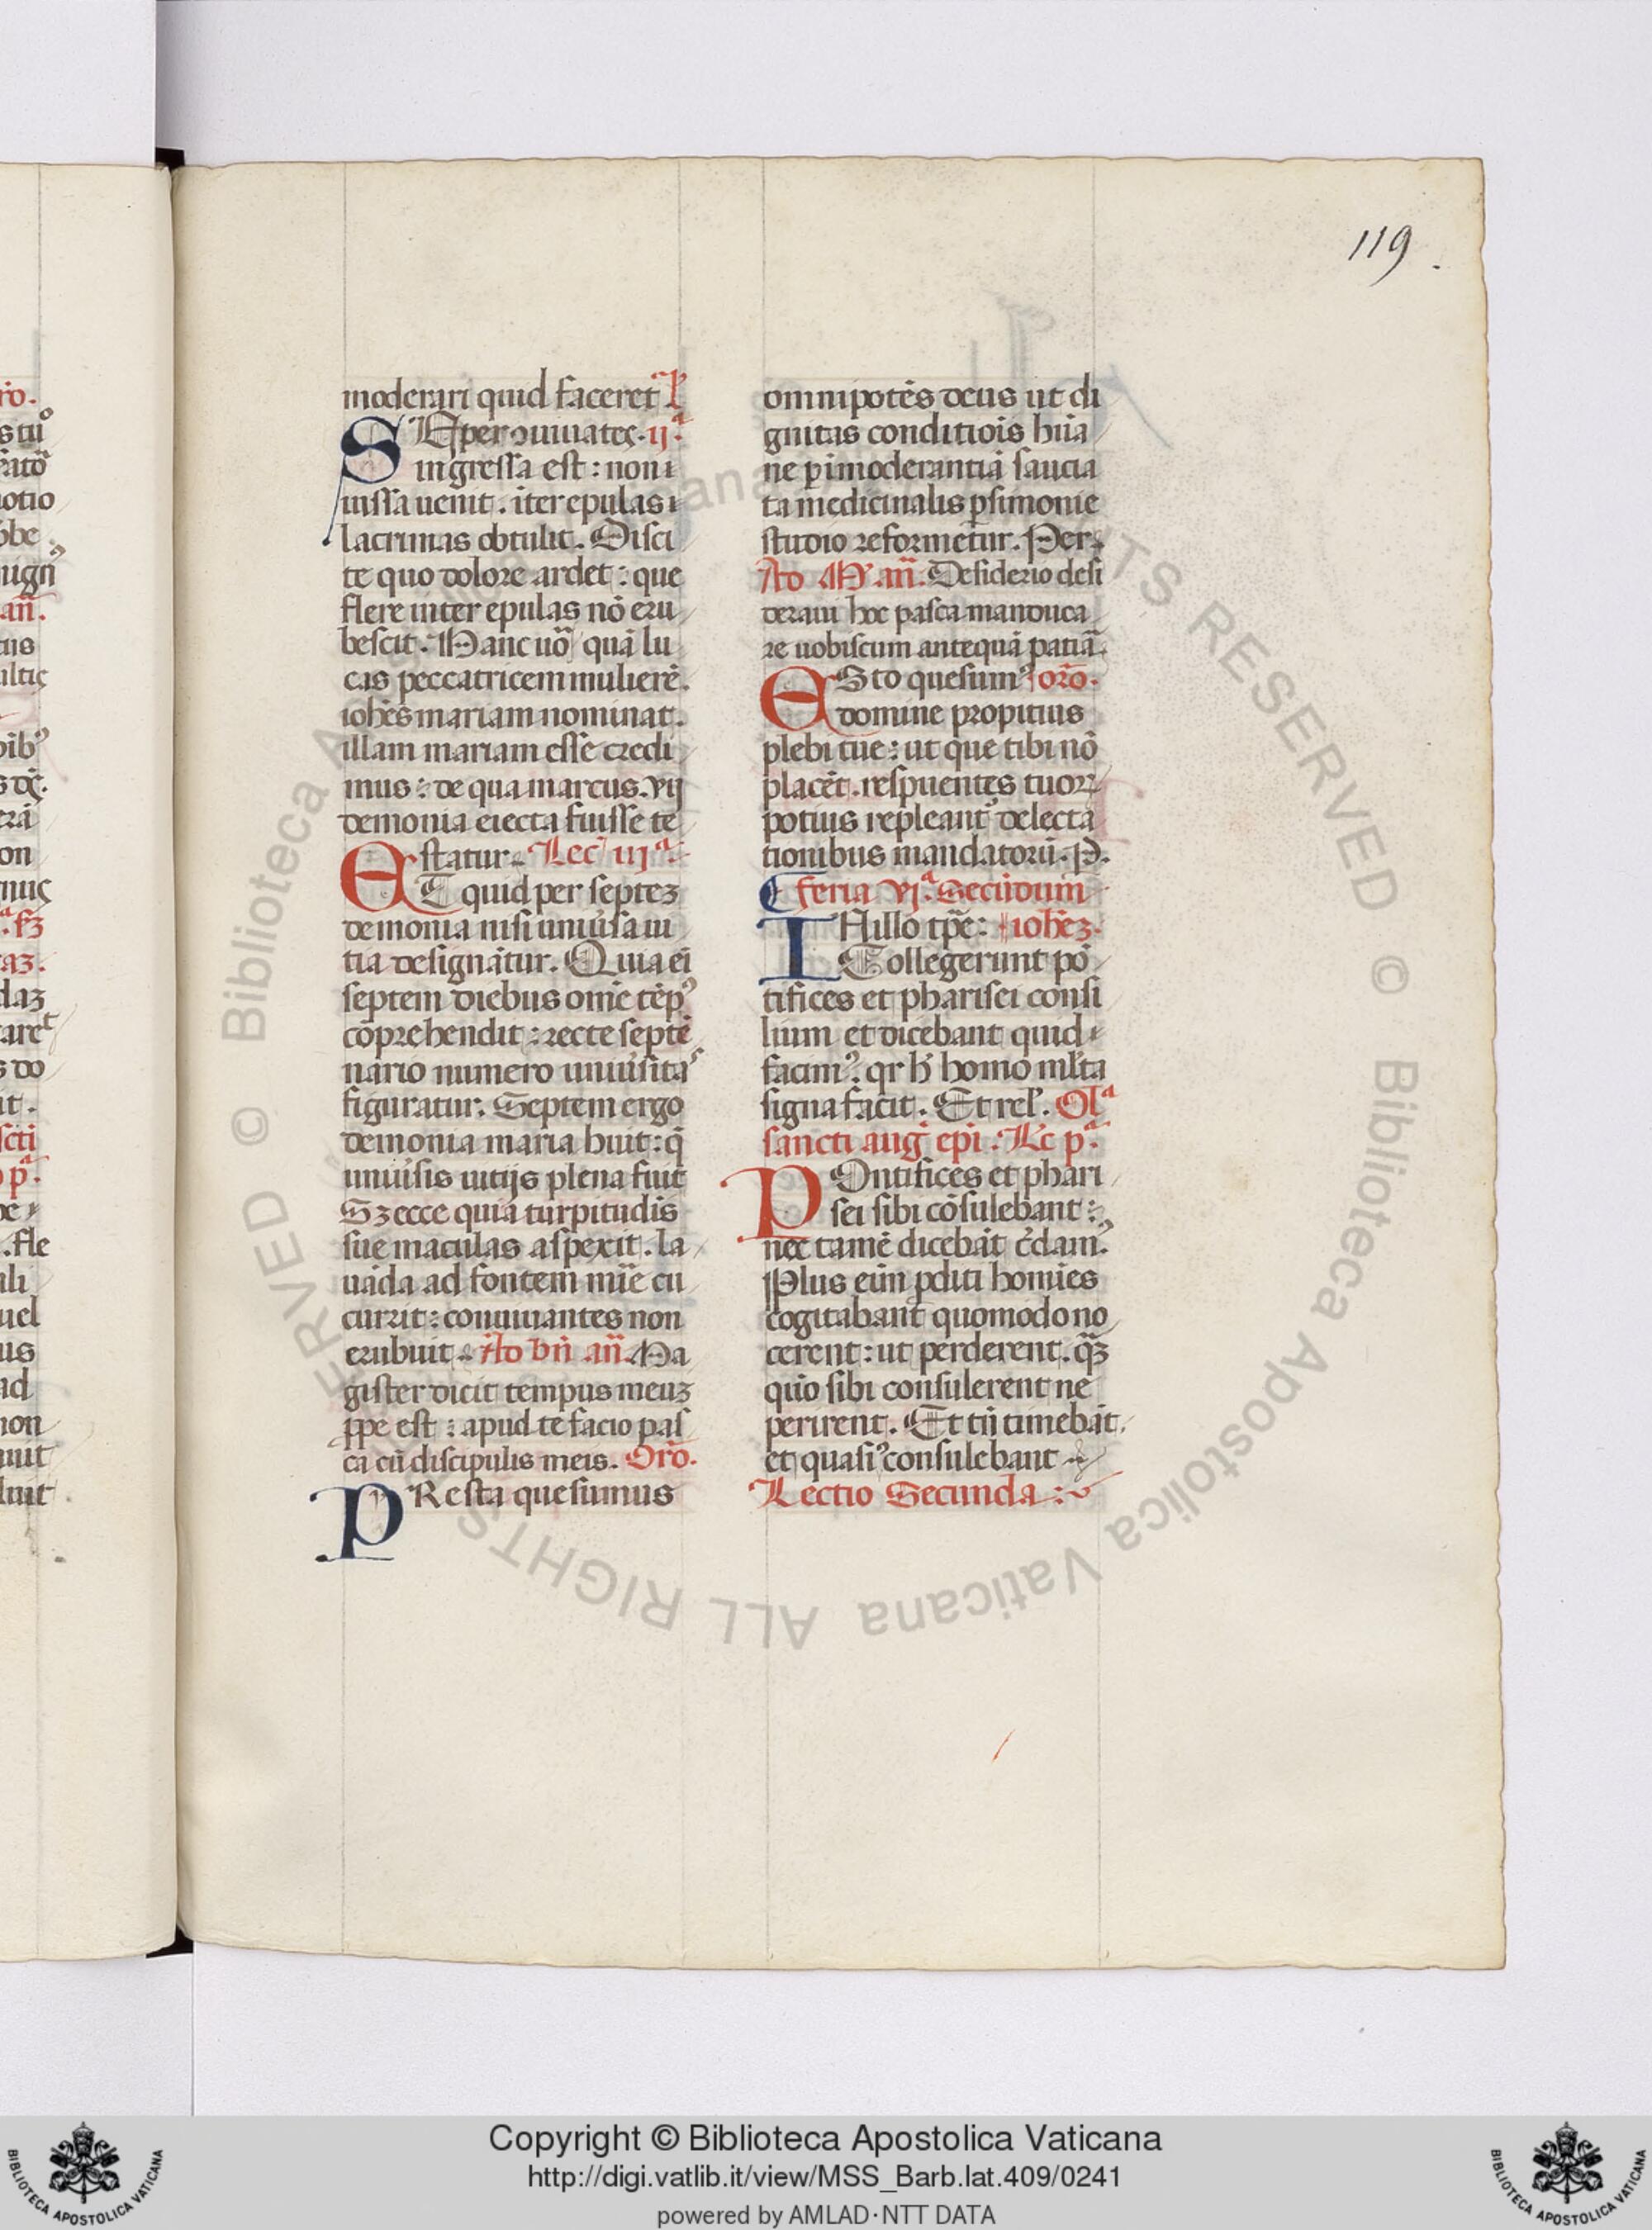 119.
moderari quid faceret. Ł
SEper ɔuiuates. ij.ª
ingressa est : non i
uissa uenit . iter epulas i
lacrimas obtulit. Disci
te quo dolore ardet : que
flere inter epulas nō eru
bescit. Hanc uō quā lu
cas peccatricem mulierē.
iohēs mariam nominat.
illam mariam esse credi
mus : de qua marcus. vij
demonia eiecta fuisse te
statur. Lec̄ iijª.
ET quid per septeꝫ
demonia nisi uniūsa ui
tia designātur. Quia ei
septem diebus om̄e tēpꝰ
cōprehendit : recte septē
nario numero uniūsitaˢ
figuratur. Septem ergo
demonia maria huit : q̄
uniūsis uitijs plena fuit
Sꝫ ecce quia turpitudīs
sue maculas aspexit . la
uāda ad fontem mīe cu
currit : conuiuantes non
erubuit. Ad bn̄ an̄. Ma
gister dicit tempus meuꝫ
ꝓpe est : apud te facio pas
ca cū discipulis meis. Orō.
PResta quesumus
omnipotēs deus ut di
gnitas conditiōis hūa
ne ꝑ īmoderantiā saucia
ta medicinalis ꝑsimonie
studio reformetur. Per.
Ad M. an̄. Desiderio desi
deraui hoc pasca manduca
re uobiscum antequā patiā.
ESto quesumꝰ orō.
domine propitius
plebi tue : ut que tibi nō
placēt . respuentes tuoꝝ
potius repleantᷣ delecta
tionibus mandatorū. P.
feria vj.ª Secūdum
INillo tp̄e : iohēꝫ.
Collegerunt pō
tifices et pharisei consi
lium et dicebant quid
facimꝰ. qr h̄ homo ml̄ta
signa facit. Et rel̄. Ol̄ª
sancti auḡ ep̄i. Łc pª.
POntifices et phari
sei sibi cōsulebant :
nec tamē dicebāt c̄damꝰ.
Plus eim ꝑditi homīes
cogitabant quomodo no
cerent : ut perderent. q̄ꝫ
quō sibi consulerent ne
perirent. Et tn̄ timebāt
et quasi ꝰconsulebant
Lectio Secunda :
Copyright © Biblioteca Apostolica Vaticana
http://digi.vatlib.it/view/MSS_Barb.lat.409/0241
powered by AMLAD·NTT DATA
BIBLIOTECA APOSTOLICA VATICANA
BIBLIOTECA APOSTOLICA VATICANA
© Biblioteca Apostolica Vaticana ALL RIGHTS RESERVED © Biblioteca Apostolica Vaticana ALL RIGHTS RESERVED